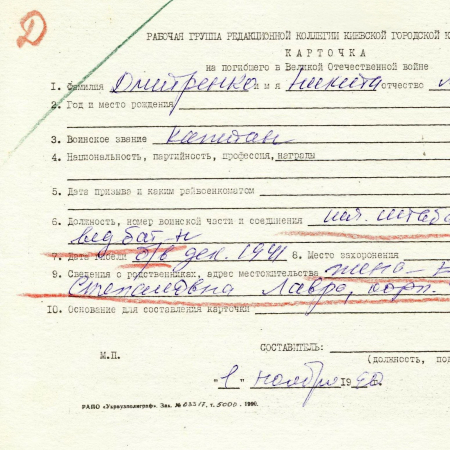 Д
РАБОЧАЯ ГРУППА РЕДАКЦИОННОЙ КОЛЛЕГИИ КИЕВСКОЙ ГОРОДСКОЙ К
КАРТОЧКА
на погибшего в Великой Отечественной войне
1. Фамилия Дмитренко имя Никита отчество
2. Год и место рождения
3. Воинское звание капитан
4. Национальность, партийность, профессия, награды
5. Дата призыва и каким райвоенкоматом
6. Должность, номер воинской части и соединения нач. штаба
7. Дата гибели б/в дек. 1941 8. Место захоронения
9. Сведения о родственниках, адрес местожительства жена –
Степановна Лавра, корп.
10. Основание для составления карточки
СОСТАВИТЕЛЬ:
М.П.
(должность, под
"1" ноября 1990
РАПО «Укрвузполиграф». Зак. № 0337/7, т. 5000. 1990.